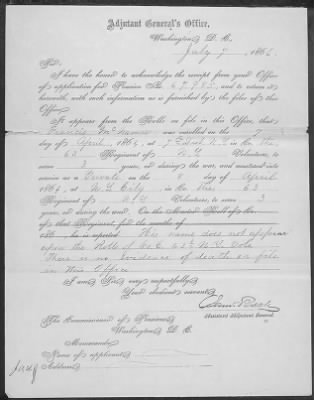 Adjutant General's Office,
Washington, D. C.
July 7, 186
Sir:
I have the honor to acknowledge the receipt from your Office
of application for Pension No. 47.985, and to return it
herewith, with such information as is furnished by the files of this
Office.
It appears from the Rolls on file in this Office, that
Francis was enrolled on the 7
day of April, 1864, at N.Y. in Co.
63 Regiment of N.Y. Volunteers, to
serve 3 years, or during the war, and mustered into
service as a Private on the 8 day of April
1864, at N.Y. City, in Co. 63
Regiment of N.Y. Volunteers, to serve 3
years, or during the war. On the Muster Roll of Co.
of that Regiment, for the months of
186 , he is reported His name does not appear
upon the Rolls of Co. C 63d N.Y. Vols
There is no evidence of death on file
in this Office
I am, Sir, very respectfully,
Your obedient servant,
Assistant Adjutant General.
The Commissioner of Pensions,
Washington, D. C.
Memoranda:
Name of applicant,
Address,